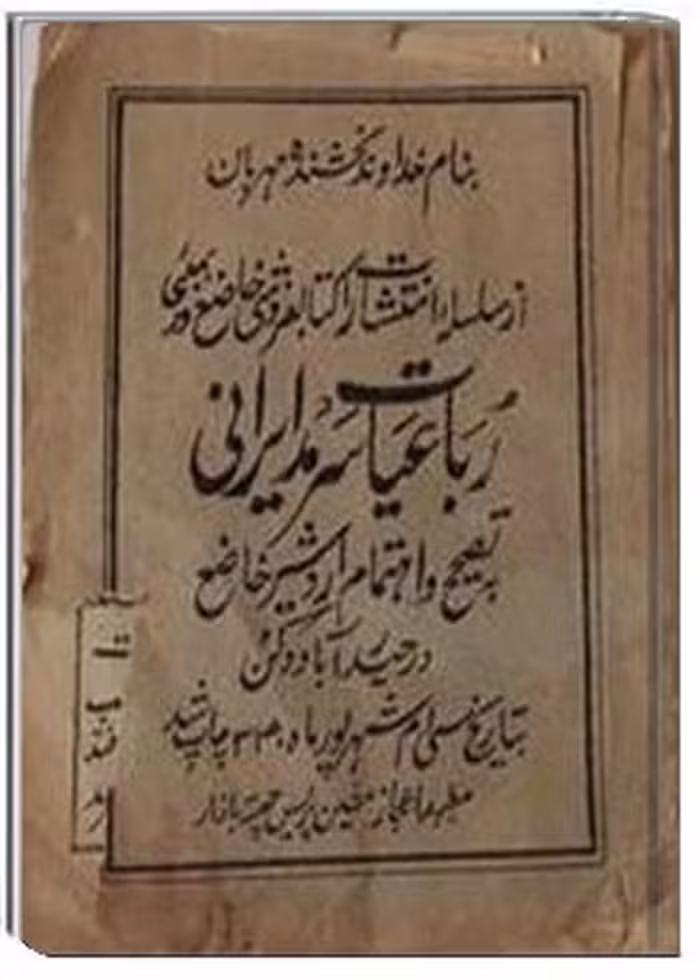 بنام خداوند بخشنده مهربان
از سلسله انتشارات کتابفروشی خاضع در بمبئی
رُباعیات سَرمَد ایرانی
به تصحیح و اهتمام اردشیر خاضع
در حیدرآباد دکن
بتاریخ سی ام شهریور ماه چاپ شد
مطبوعه اعجاز مشین پریس چهته بازار